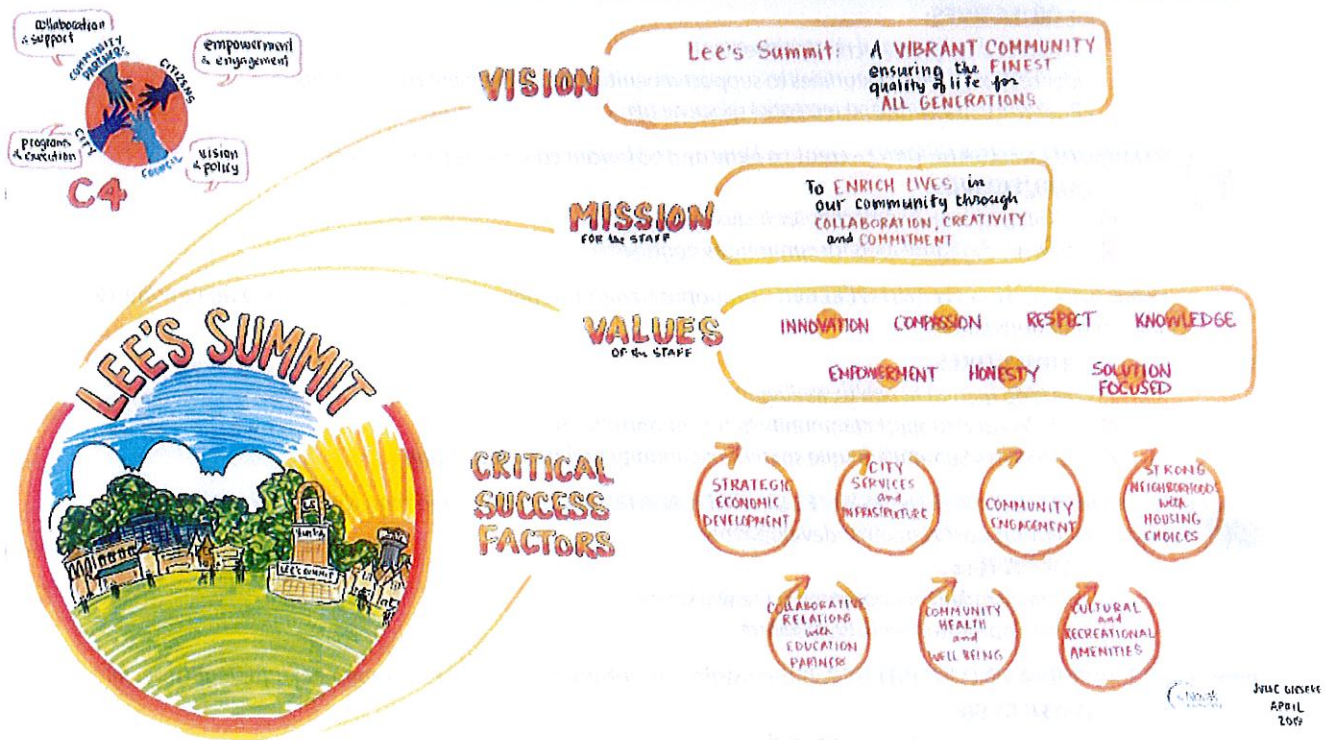 collaboration
& support
COMMUNITY
PARTNERS
CITIZENS
empowerment
& engagement
programs
& execution
CITY
COUNCIL
vision
& policy
C4
VISION
Lee's Summit: A VIBRANT COMMUNITY
ensuring the FINEST
quality of life for
ALL GENERATIONS
MISSION
FOR the STAFF
To ENRICH LIVES in
our community through
COLLABORATION, CREATIVITY
and COMMITMENT
VALUES
OF the STAFF
INNOVATION COMPASSION RESPECT KNOWLEDGE
EMPOWERMENT HONESTY SOLUTION
FOCUSED
LEE'S SUMMIT
LEE'S SUMMIT
CRITICAL
SUCCESS
FACTORS
STRATEGIC
ECONOMIC
DEVELOPMENT
CITY
SERVICES
and
INFRASTRUCTURE
COMMUNITY
ENGAGEMENT
STRONG
NEIGHBORHOODS
with
HOUSING
CHOICES
COLLABORATIVE
RELATIONS
with
EDUCATION
PARTNERS
COMMUNITY
HEALTH
and
WELL BEING
CULTURAL
and
RECREATIONAL
AMENITIES
JULIE GIESEKE
APRIL
2019